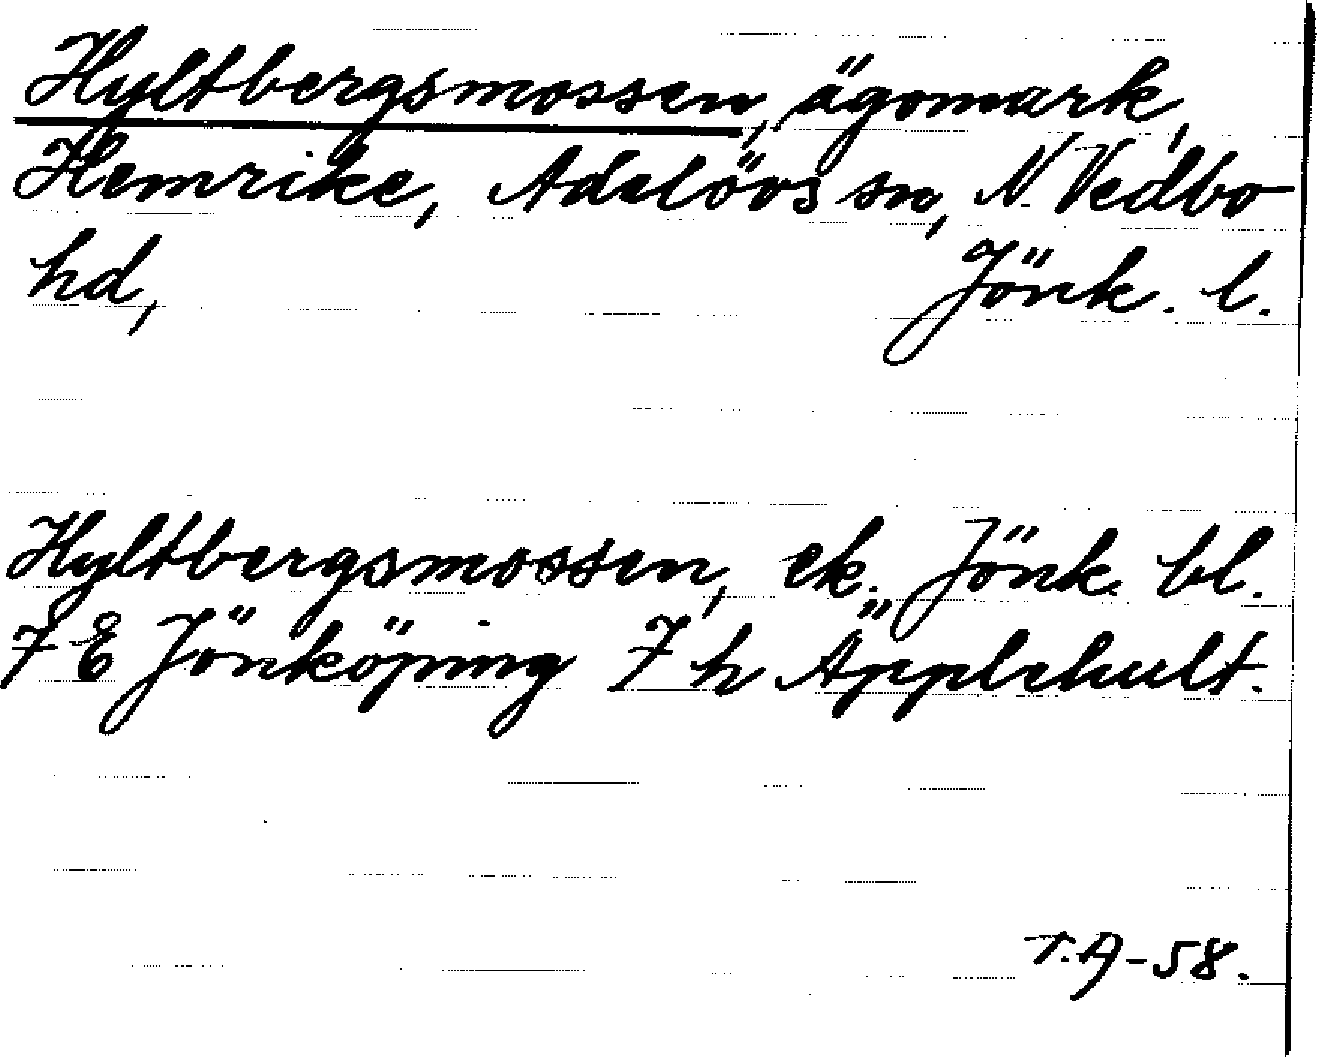 Hyltbergsmossen, ägomark,
Hemrike, Adelövs sn, N. Vedbo
hd, Jönk. l.
Hyltbergsmossen, ek. Jönk. bl.
7 E Jönköping 7 h Äpplehult.
T.A-58.